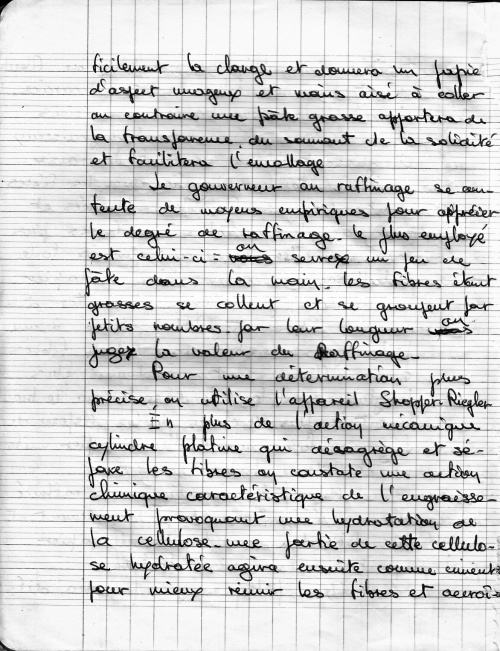 ficilement la charge et donnera un papie
d'aspect nuageux et moins aisé à coller
au contraire une pâte grasse apportera de
la transparence, du sonnant de la solidité
et facilitera l'encollage
Le gouverneur au raffinage se con-
tente de moyens empiriques pour apprécier
le degré de raffinage. le plus employé
est celui-ci = on serre un peu de
pâte dans la main. les fibres étant
grasses se collent et se groupent par
petits nombres. par leur longueur on
juge la valeur du Raffinage.
Pour une détermination plus
précise on utilise l'appareil Shopper-Riegler
En plus de l'action mécanique
cylindre platine qui désagrège et sé-
pare les fibres on constate une action
chimique caractéristique de l'engraisse-
ment provoquant une hydratation de
la cellulose. une partie de cette cellulo-
se hydratée agira ensuite comme ciment
pour mieux réunir les fibres et accroî-